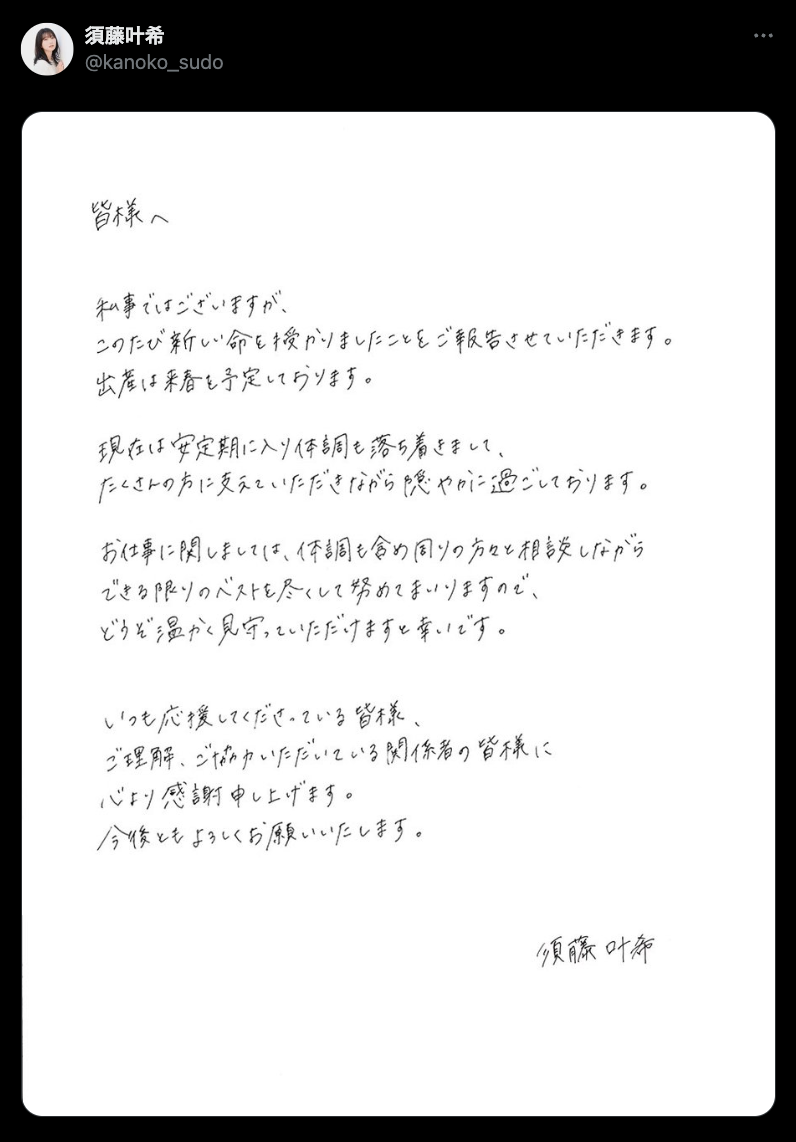 須藤叶希
@kanoko_sudo
皆様へ
私事ではございますが、
このたび新しい命を授かりましたことをご報告させていただきます。
出産は来春を予定しております。
現在は安定期に入り体調も落ち着きまして、
たくさんの方に支えていただきながら穏やかに過ごしております。
お仕事に関しましては、体調も含め周りの方々と相談しながら
できる限りのベストを尽くして努めてまいりますので、
どうぞ温かく見守っていただけますと幸いです。
いつも応援してくださっている皆様、
ご理解、ご協力いただいている関係者の皆様に
心より感謝申し上げます。
今後ともよろしくお願いいたします。
須藤叶希